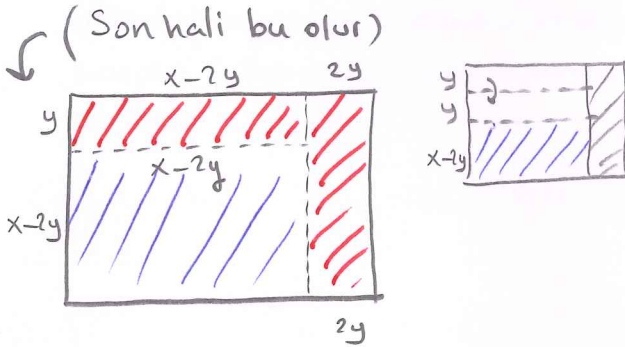 (Son hali bu olur)
x-2y 2y
y
x-2y
x-2y
2y
y
y
x-2y